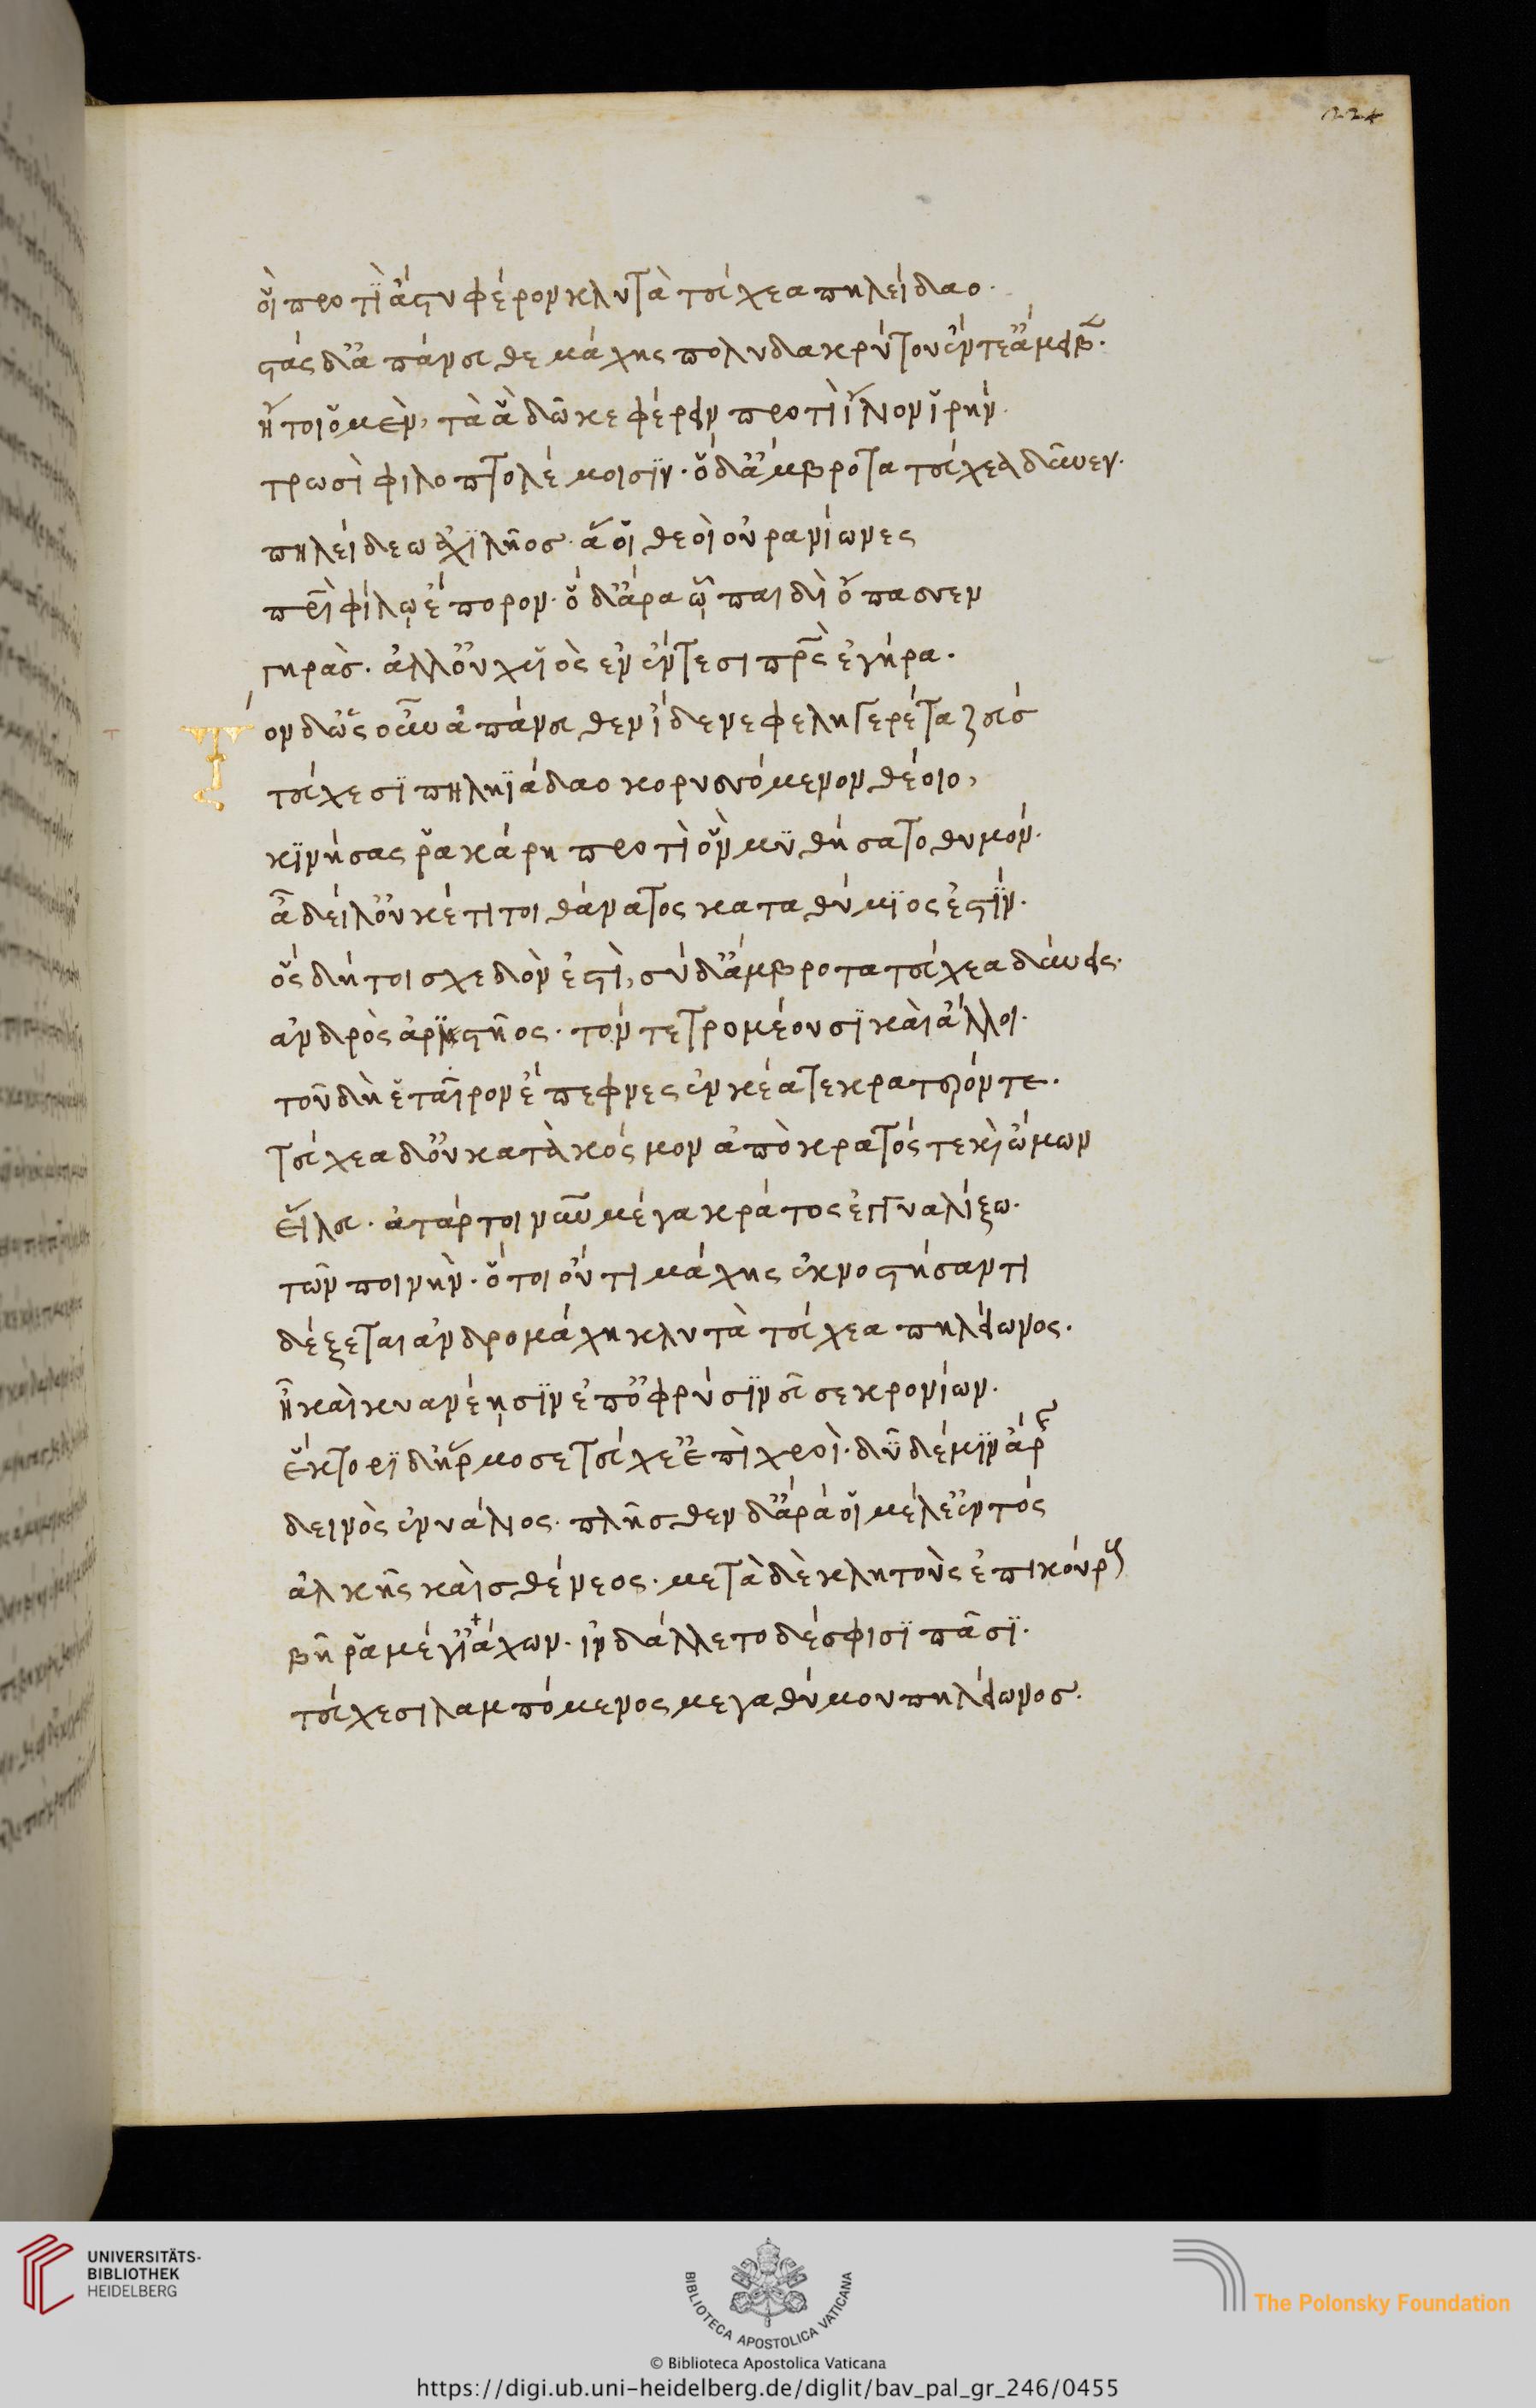 224
οἳ προτὶ ἄστυ φέρον κλυτὰ τεύχεα πηλείδαο·
στὰς δ' ἀπάνευθε μάχης πολυδακρύτου ἔντε' ἄμειβεν·
ἤτοι ὃ μὲν, τὰ ἃ δῶκε φέρειν προτὶ ἴλιον ἱρήν·
τρωσὶ φιλοπτολέμοισιν· ὃ δ' ἄμβροτα τεύχεα δῦνεν·
πηλείδεω ἀχιλῆος· ἅ οἱ θεοὶ οὐρανίωνες
πατρὶ φίλῳ ἔπορον· ὃ δ' ἄρα ᾧ παιδὶ ὄπασσεν
γηράς· ἀλλ' οὐχ υἱὸς ἐν ἔντεσι πατρὸς ἐγήρα·
Τὸν δ' ὡς οὖν ἀπάνευθεν ἴδε νεφεληγερέτα ζεύς
τεύχεσι πηληϊάδαο κορυσσόμενον θείοιο,
κινήσας ῥα κάρη προτὶ ὃν μυθήσατο θυμόν·
ἆ δείλ' οὐκέτι τοι θάνατος καταθύμιος ἐστίν·
ὃς δή τοι σχεδὸν ἐστὶ, σὺ δ' ἄμβροτα τεύχεα δύνεις·
ἀνδρὸς ἀριστῆος· τόν τε τρομέουσι καὶ ἄλλοι·
τοῦ δὴ ἑταῖρον ἔπεφνες ἐνηέα τε κρατερόν τε·
τεύχεα δ' οὐ κατὰ κόσμον ἀπὸ κρατός τε καὶ ὤμων
εἵλευ· ἀτάρ τοι νῦν μέγα κράτος ἐγγυαλίξω·
τῶν ποινὴν· ὅ τοι οὔτι μάχης ἐκνοστήσαντι
δέξεται ἀνδρομάχη κλυτὰ τεύχεα πηλείωνος·
ἦ καὶ κυανέῃσιν ἐπ' ὀφρύσιν εῦσε κρονίων·
ἕκτορι δ' ἥρμοσε τεύχε' ἐπὶ χροΐ· δῦ δέ μιν ἄρης
δεινὸς ἐνυάλιος· πλῆσθεν δ' ἄρά οἱ μέλε' ἐντός
ἀλκῆς καὶ σθένεος· μετὰ δὲ κλητοὺς ἐπικούρους
βῆ ῥα μέγ' ἰάχων· ἰνδάλλετο δέ σφισι πᾶσι·
τεύχεσι λαμπόμενος μεγαθύμου πηλείωνος·
UNIVERSITÄTS-
BIBLIOTHEK
HEIDELBERG
BIBLIOTECA APOSTOLICA VATICANA
© Biblioteca Apostolica Vaticana
The Polonsky Foundation
https://digi.ub.uni-heidelberg.de/diglit/bav_pal_gr_246/0455